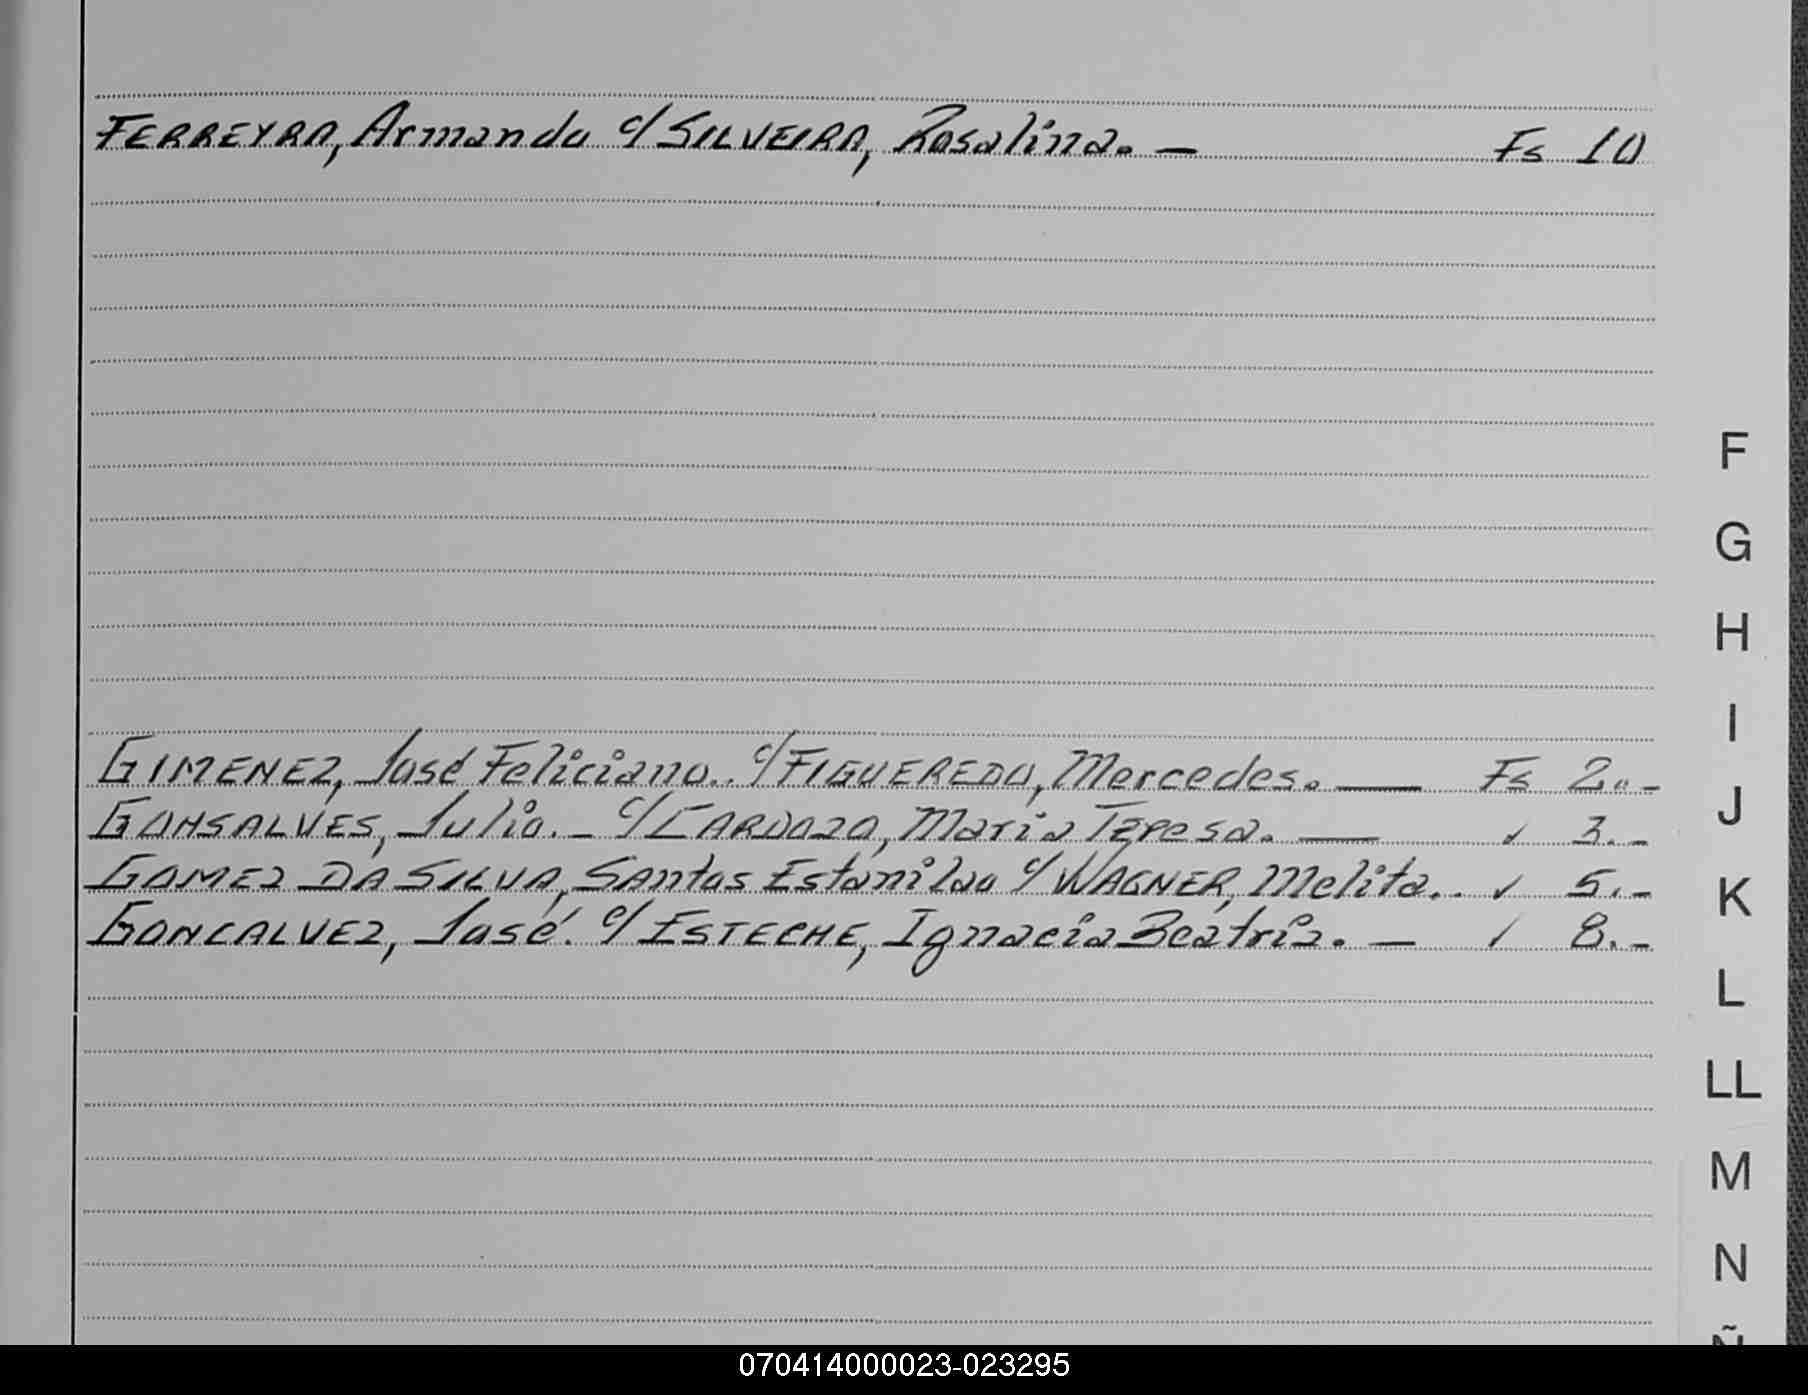 FERREYRA, Armando c/ SILVEIRA, Rosalina. — Fs 10
F
G
H
I
GIMENEZ, José Feliciano.. c/ FIGUEREDO, Mercedes. — Fs 2.. -
J
GONSALVES, Julio. - c/ CARDOZO, Maria Teresa. — ✓ 3. -
GOMEZ DA SILVA, Santos Estanilao c/ WAGNER, Melita.. ✓ 5. -
K
GONCALVEZ, José. c/ ESTECHE, Ignacia Beatriz. — ✓ 8. -
L
LL
M
N
Ñ
070414000023-023295